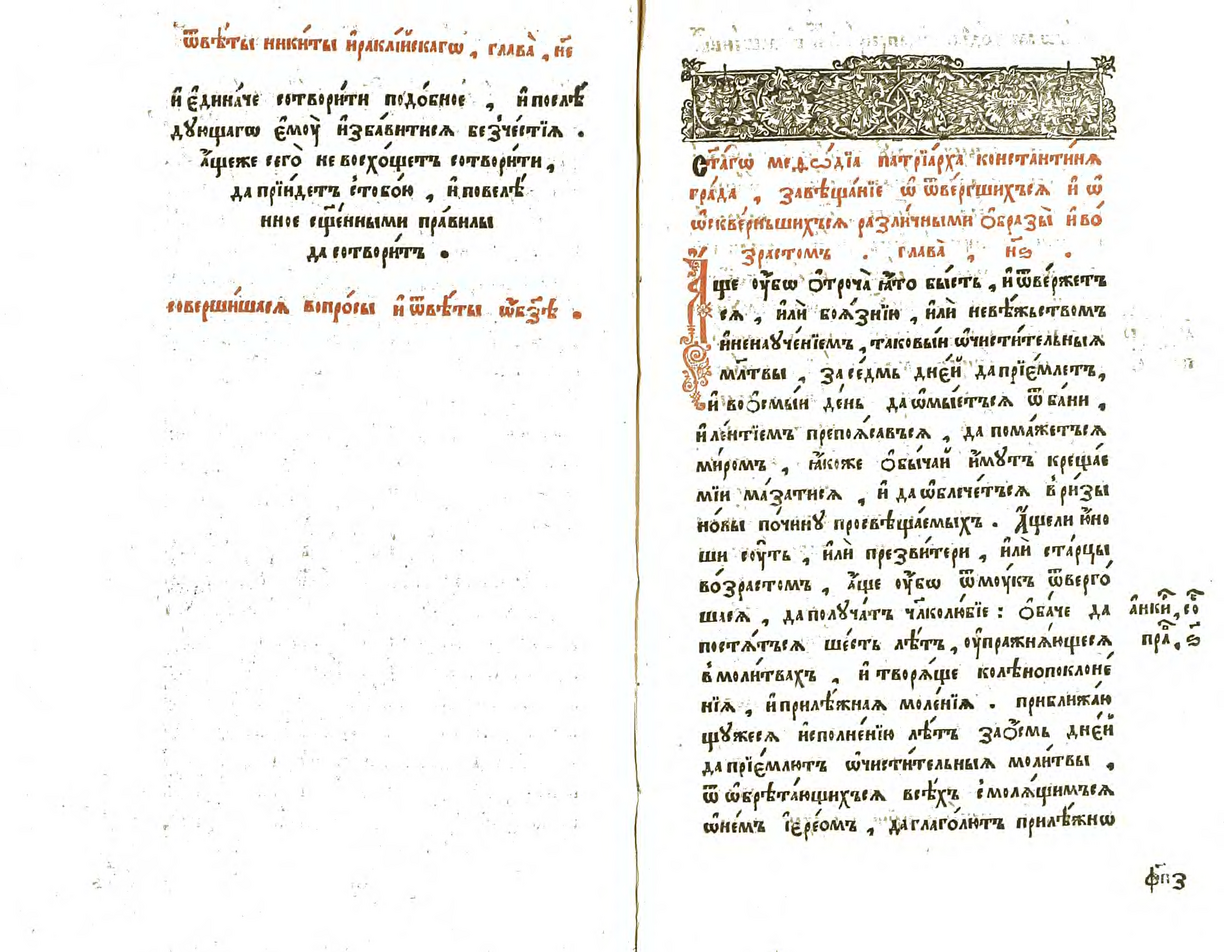 ѿвѣ́ты ники́ты и҆ракли́йскагѡ , глава̀ , н҃е
и҆ є҆дина́че сотвори́ти подо́бное , и҆ послѣ́
дующагѡ є҆моу̀ и҆зба́витися безче́стїѧ .
а҆́щеже сего̀ не восхо́щетъ сотвори́ти ,
да прїи́детъ с̾тобо́ю , и҆ повелѣ́
нное сщ҃е́нными пра́вилы
да сотвори́тъ .
соверши́шасѧ вопро́сы и҆ ѿвѣ́ты ѡ҆ бз҃ѣ .
Ст҃а́гѡ меѳѡ́дїа патрїа́рха константинѧ
гра́да , завѣща́нїе ѡ҆ ѿве́ргшихъсѧ и҆ ѡ҆
ѡ҆скве́рньшихъсѧ разли́чными о҆́бразы̀ и҆ во́
зрастомъ . глава̀ , н҃ѕ .
А҆́ще оу҆́бѡ ѻ҆троча̀ ꙗ҆́то бы́сть , и҆ ѿве́ржетъ
сѧ , и҆лѝ боѧ́знїю , и҆лѝ невѣ́жьствомъ
и҆ ненаꙋче́нїемъ , таковы́и ѡ҆чисти́тельныѧ
мл҃твы , за се́дмь дне́й да прїе́млетъ ,
и҆ во ѻ҆смы́й де́нь да ѡ҆мы́етъсѧ ѿ ба́ни ,
и҆ ле́нтїемъ препоѧ́савъсѧ , да пома́жетъсѧ
ми́ромъ , ꙗ҆́коже ѻ҆бы́чай и҆́мутъ креща́е
мїи ма́затисѧ , и҆ да ѡ҆блече́тъсѧ в̾ ри́зы
но́вы по чи́нꙋ просвѣща́емыхъ . А҆́щели ю҆́но
ши соу́ть , и҆лѝ презви́тери , и҆лѝ ста́рцы
во́зрастомъ , а҆́ще оу҆́бѡ ѿ моу́къ ѿверго́
шасѧ , да полꙋча́тъ чл҃колю́бїе : ѻ҆ба́че да
постѧ́тъсѧ ше́сть лѣ́тъ , оу҆пражнѧ́ющесѧ
в̾ моли́твахъ , и҆ творѧ́ще колѣнопоклоне́
нїѧ , и҆ прилѣ́жнаѧ моле́нїѧ . приближа́ю
щꙋжесѧ и҆сполне́нїю лѣ́тъ за ѻ҆́смь дне́й
да прїе́млютъ ѡ҆чисти́тельныѧ моли́твы ,
ѿ ѡ҆брѣта́ющихъсѧ всѣ́хъ с̾молѧ́щимъсѧ
ѡ҆ не́мъ і҆ере́омъ , да глаго́лютъ прилѣ́жнѡ
а҆нки́р , со́б
пра́в , ѕ҃
фп҃з